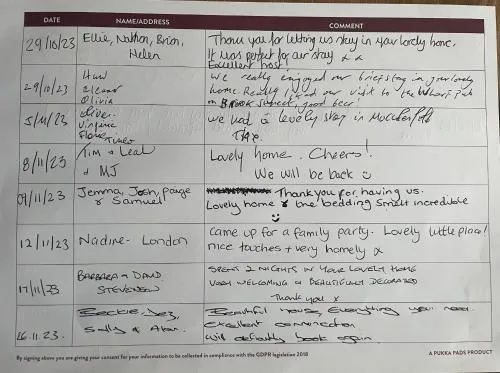 DATE NAME/ADDRESS COMMENT
29/10/23 Ellie, Nathan, Brian, Helen
Thank you for letting us stay in your lovely home.
It was perfect for our stay x x
Excellent host!
29/10/23 Huw
Eleanor
Olivia
We really enjoyed our brief stay in your lovely
home. Really liked our visit to the Wharf Pub
on Brook Street, good beer!
5/11/23 Oliver
Virginie
Flore
we had a lovely stay in Macclesfield
8/11/23 Tim & Leah
& MJ
Lovely home. Cheers!
We will be back
09/11/23 Jemma, Josh, Paige
& Samuel
Thank you for having us.
Lovely home & the bedding smelt incredible
12/11/23 Nadine- London
Came up for a family party. Lovely little place!
nice touches + very homely x
17/11/23 BARBARA & DAVID
STEVENSON
SPENT 2 NIGHTS IN YOUR LOVELY HOME
VERY WELCOMING & BEAUTIFULLY DECORATED
Thank you x
26.11.23. Beckie, Jez,
Sally & Alan.
Beautiful house, Everything you need.
Excellent communication
will definitely book again.
By signing above you are giving your consent for your information to be collected in compliance with the GDPR legislation 2018
A PUKKA PADS PRODUCT